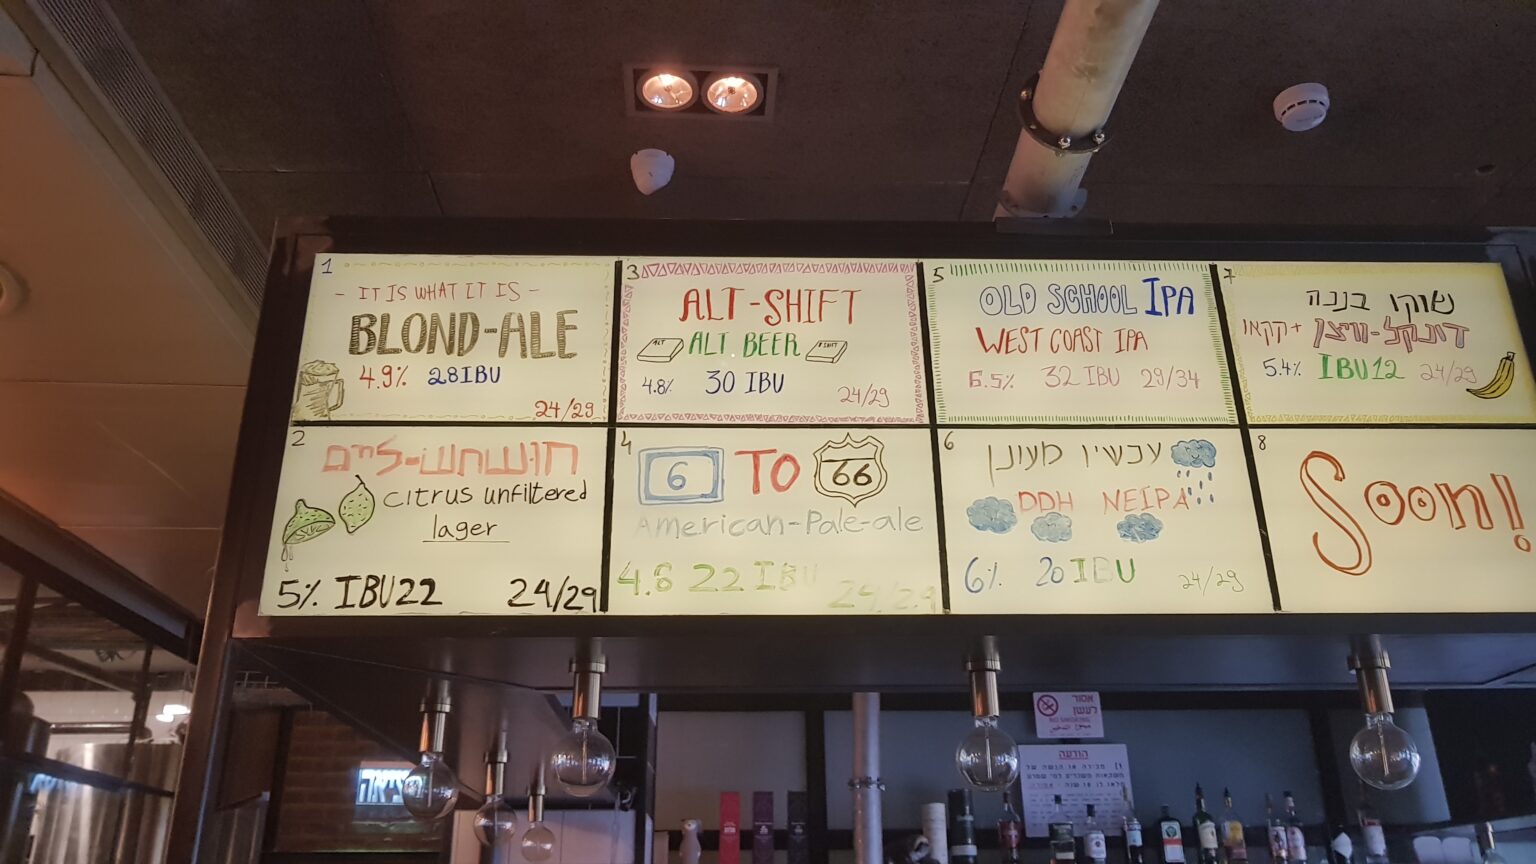 1
- IT IS WHAT IT IS -
BLOND-ALE
4.9% 28IBU
24/29
3
ALT-SHIFT
ALT ALT BEER SHIFT
4.8% 30 IBU 24/29
5
OLD SCHOOL IPA
WEST COAST IPA
6.5% 32 IBU 29/34
7
שוקו בננה
דונקל-וויצן + קקאו
5.4% IBU12 24/29
2
חושחש-ליים
citrus unfiltered
lager
5% IBU22 24/29
4
6 TO 66
American-Pale-ale
4.6 22 IBU 24/29
6
עכשיו מעונן
DDH NEIPA
6% 20 IBU 24/29
8
Soon!
אסור
לעשן
NO SMOKING
הודעה
יציאה